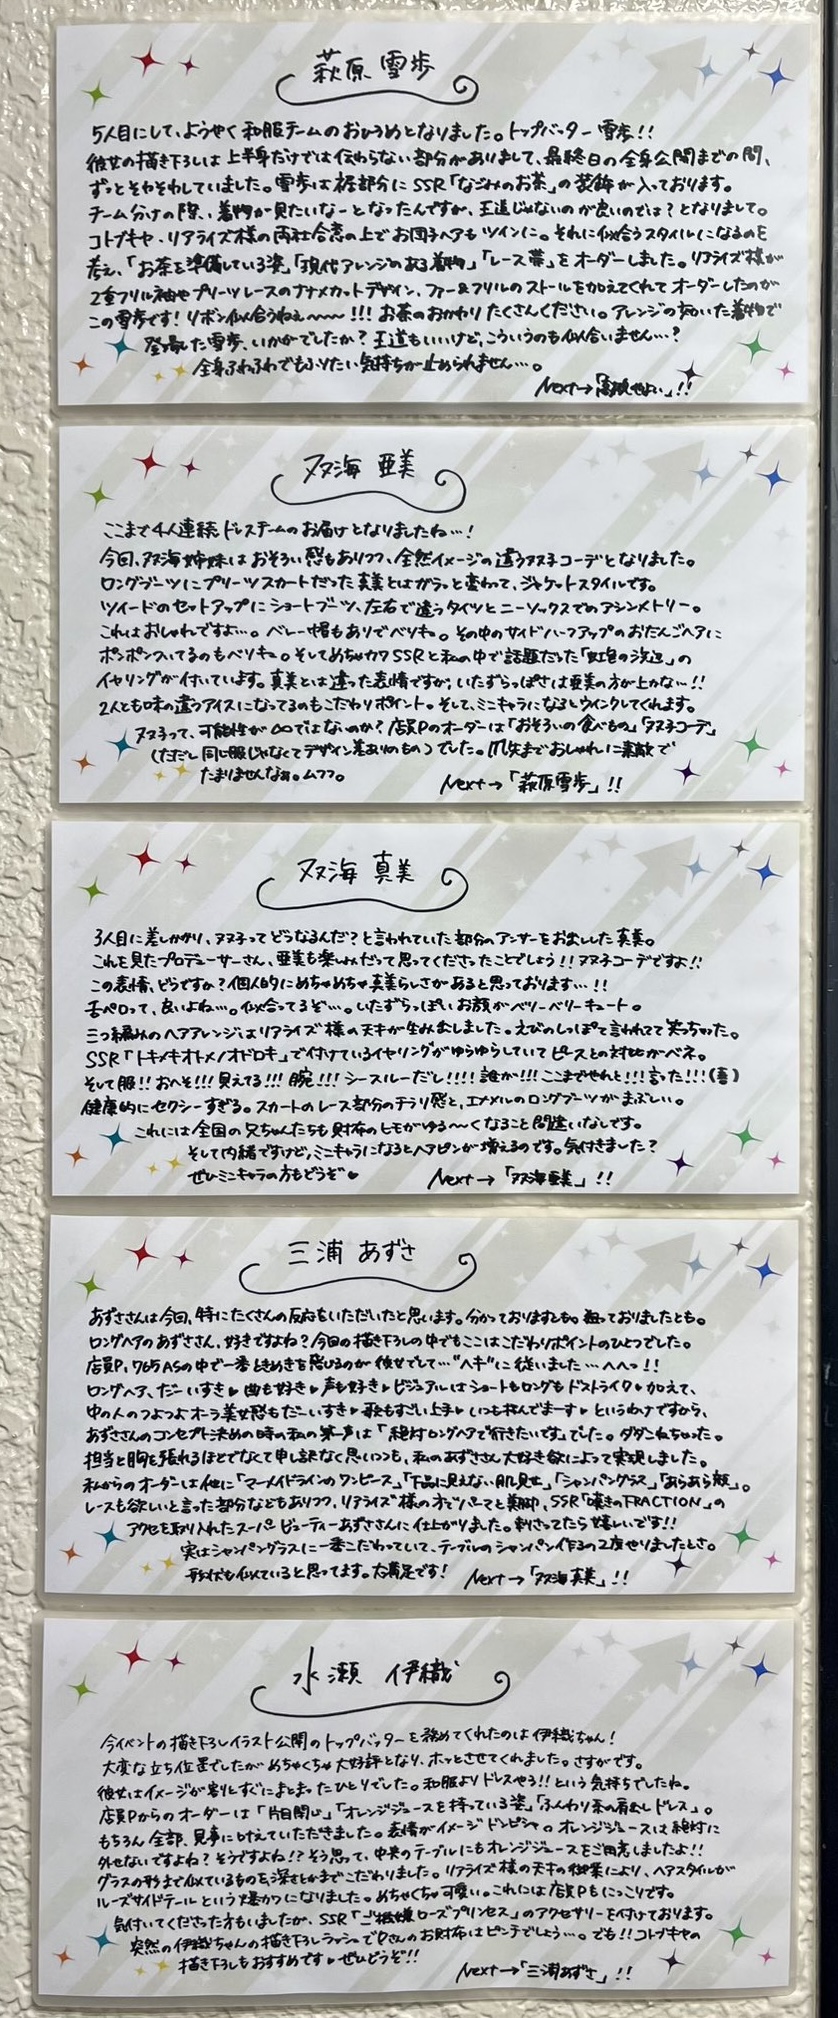 萩原 雪歩
5人目にして、ようやく和服チームのおひろめとなりました。トップバッター 雪歩!!
彼女の描き下ろしは上半身だけでは伝わらない部分がありまして、最終日の全身公開までの間、
ずっとそわそわしていました。雪歩は裾部分にSSR「なごみのお茶」の装飾が入っております。
チーム分けの際、着物が見たいなーとなったんですが、王道じゃないのが良いのでは?となりまして。
コトブキヤ・リアライズ様の両社合意の上でお団子ヘアもツインに。それに似合うスタイルになるのを
考え、「お茶を準備している姿」「現代アレンジのある着物」「レース帯」をオーダーしました。リアライズ様が
2重フリル袖やプリーツレースのナナメカットデザイン、ファー&フリルのストールを加えてくれてオーダーしたのが
この雪歩です!リボン似合うねぇ〜〜〜!!! お茶のおかわりたくさんください。アレンジの効いた着物で
登場した雪歩、いかがでしたか?王道もいいけど、こういうのも似合いません…?
全身ふわふわでもふりたい気持ちが止められません…。
Next→「高槻やよい」!!
双海 亜美
ここまで4人連続ドレスチームのお届けとなりましたね…!
今回、双海姉妹はおそろい感もありつつ、全然イメージの違う双子コーデとなりました。
ロングブーツにプリーツスカートだった真美とはガラッと変わって、ジャケットスタイルです。
ツイードのセットアップにショートブーツ、左右で違うタイツとニーソックスでのアシンメトリー。
これはおしゃれですよ…。ベレー帽もありでベリキュ。その中のサイドハーフアップのおだんごヘアに
ポンポンついてるのもベリキュ。そしてめちゃカワSSRと私の中で話題だった「虹色の浜辺」の
イヤリングが付いています。真美とは違った表情ですが、いたずらっぽさは亜美の方が上かな…!!
2人とも味の違うアイスになってるのもこだわりポイント。そして、ミニキャラになるとウインクしてくれます。
双子って、可能性が∞ではないのか?店員Pのオーダーは「おそろいの食べもの」「双子コーデ」
(ただし同じ服じゃなくてデザイン差ありのもの)でした。爪先までおしゃれに素敵で
たまりませんなぁ。ムフフ。
Next→「萩原雪歩」!!
双海 真美
3人目に差しかかり、双子ってどうなるんだ?と言われていた部分のアンサーをお出しした真美。
これを見たプロデューサーさん、亜美も楽しみだって思ってくださったことでしょう!!双子コーデですよ!!
この表情、どうですか?個人的にめちゃめちゃ真美らしさがあると思っております…!!
舌ペロって、良いよね…。似合ってるぞ…。いたずらっぽいお顔がベリーベリーキュート。
三つ編みのヘアアレンジはリアライズ様の天才が生み出しました。えびのしっぽって言われてて笑っちゃった。
SSR「トキメキオトメノオドロキ」で付けているイヤリングがゆらゆらしていてピースとの対比がベネ。
そして服!!おへそ!!!見えてる!!!腕!!!シースルーだし!!!!誰が!!!ここまでやれと!!!言った!!!(喜)
健康的にセクシーすぎる。スカートのレース部分のチラリ感と、エナメルのロングブーツがまぶしい。
これには全国の兄ちゃんたちも財布のヒモがゆる〜くなること間違いなしです。
そして内緒ですけど、ミニキャラになるとヘアピンが増えるのです。気付きました?
ぜひミニキャラの方もどうぞ♥
Next→「双海亜美」!!
三浦 あずさ
あずささんは今回、特にたくさんの反応をいただいたと思います。分かっておりますとも。狙っておりましたとも。
ロングヘアのあずささん、好きですよね?今回の描き下ろしの中でもここはこだわりポイントのひとつでした。
店員P、765ASの中で一番ときめきを感じるのが彼女でして…"ヘキ"に従いました…へへっ!!
ロングヘア、だーいすき♥曲も好き♥声も好き♥ビジュアルはショートもロングもドストライク♥加えて、
中の人のつよつよオーラ美女感もだーいすき♥歌もすごい上手♥いつも拝んでまーす♥というわけですから、
あずささんのコンセプト決めの時の私の第一声は「絶対ロングヘアで行きたいです」でした。ダダこねちゃった。
担当と胸を張れるほどでなくて申し訳なく思いつつも、私のあずささん大好き欲によって実現しました。
私からのオーダーは他に「マーメイドラインのワンピース」「下品に見えない肌見せ」「シャンパングラス」「あらあら顔」。
レースも欲しいと言った部分などもありつつ、リアライズ様の才でバーンと美脚、SSR「嘆きのFRACTION」の
アクセを取り入れたスーパービューティーあずささんに仕上がりました。刺さってたら嬉しいです!!
実はシャンパングラスに一番こだわっていて、テーブルのシャンパン作るの2度やりましたとさ。
形状も似ていると思ってます。大満足です!
Next→「双海真美」!!
水瀬 伊織
今イベントの描き下ろしイラスト公開のトップバッターを務めてくれたのは伊織ちゃん!
大変な立ち位置でしたがめちゃくちゃ大好評となり、ホッとさせてくれました。さすがです。
彼女はイメージが割とすぐにまとまったひとりでした。和服よりドレスやろ!!という気持ちでしたね。
店員Pからのオーダーは「片目閉じ」「オレンジジュースを持っている姿」「ふんわり系の肩出しドレス」。
もちろん全部、見事に叶えていただきました。表情がイメージドンピシャ。オレンジジュースは絶対に
外せないですよね?そうですよね!?そう思って、中央のテーブルにもオレンジジュースをご用意しましたよ!!
グラスの形まで似ているものを深さとかまでこだわりました。リアライズ様の天才の御業により、ヘアスタイルが
ルーズサイドテールという爆かわになりました。めちゃくちゃ可愛い。これには店員Pもにっこりです。
気付いてくださった方もいましたが、SSR「ご機嫌ローズプリンセス」のアクセサリーを付けております。
突然の伊織ちゃんの描き下ろしラッシュでPさんのお財布はピンチでしょう…。でも!!コトブキヤの
描き下ろしもおすすめです♥ぜひどうぞ!!
Next→「三浦あずさ」!!